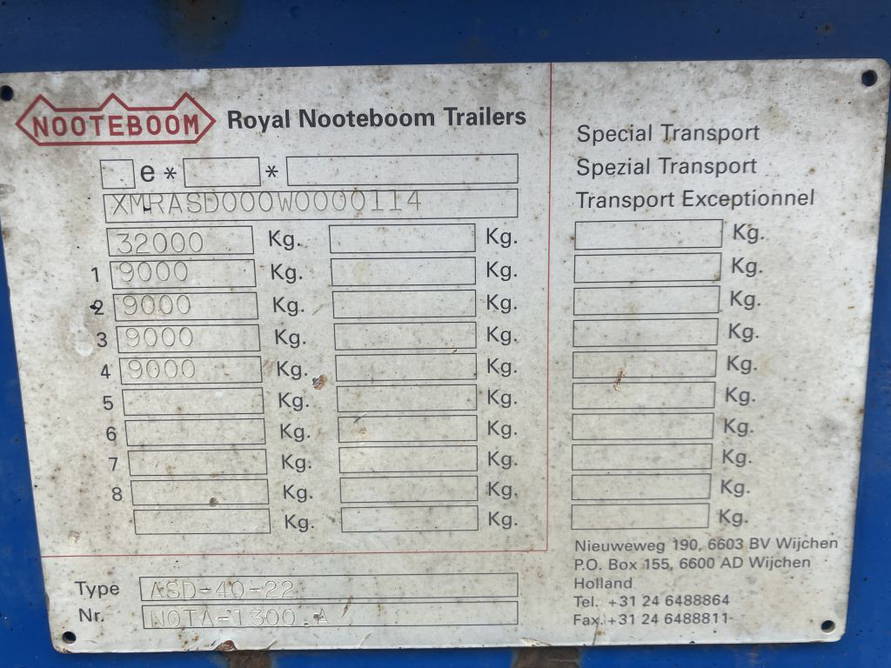 NOOTEBOOM Royal Nooteboom Trailers
e* *
XMRASD000W0000114
32000 Kg. Kg.
1 9000 Kg. Kg.
2 9000 Kg. Kg.
3 9000 Kg. Kg.
4 9000 Kg. Kg.
5 Kg. Kg.
6 Kg. Kg.
7 Kg. Kg.
8 Kg. Kg.
Kg. Kg.
Type ASD-40-22
Nr. NOTA-1300.A
Special Transport
Spezial Transport
Transport Exceptionnel
Kg.
Kg.
Kg.
Kg.
Kg.
Kg.
Kg.
Kg.
Kg.
Kg.
Nieuweweg 190, 6603 BV Wijchen
P.O. Box 155, 6600 AD Wijchen
Holland
Tel. +31 24 6488864
Fax. +31 24 6488811